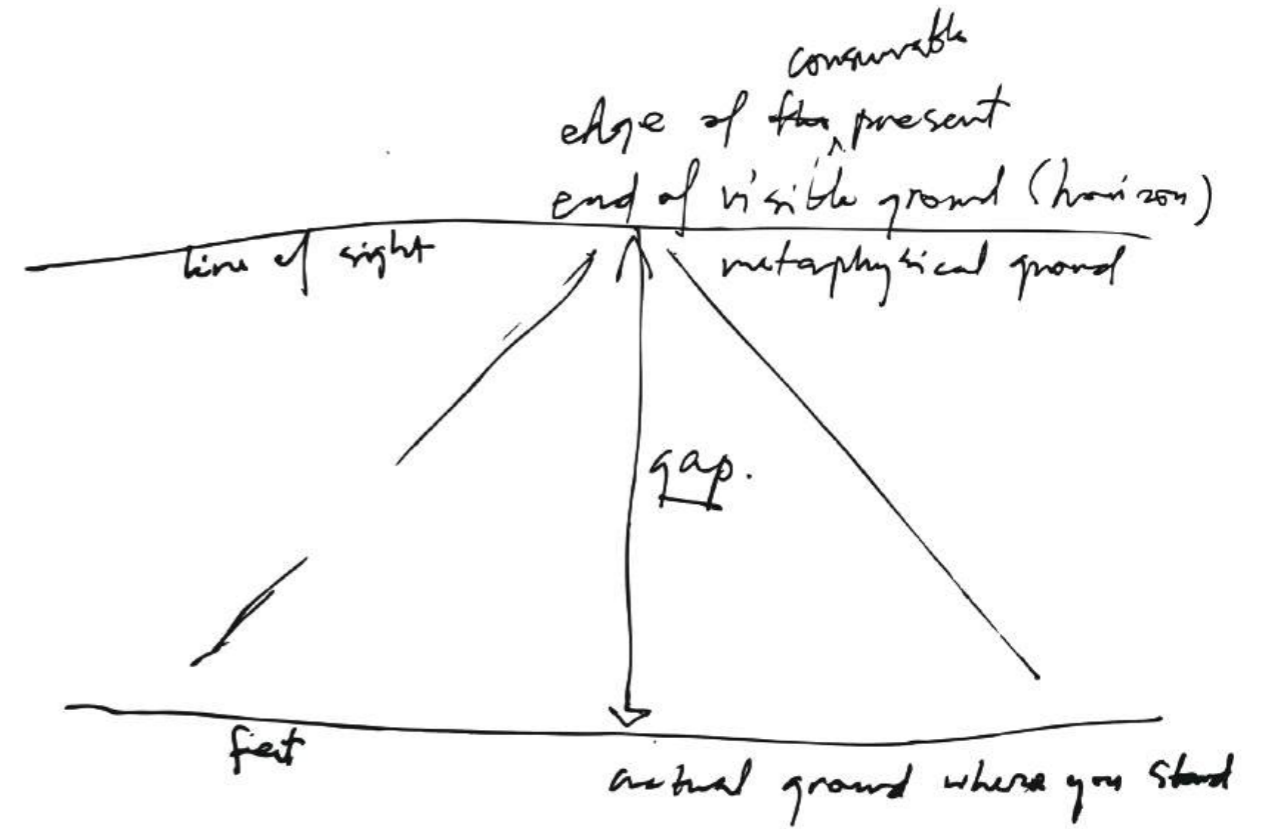 consumable
edge of the present
end of visible ground (horizon)
line of sight
metaphysical ground
gap.
feet
actual ground where you stand